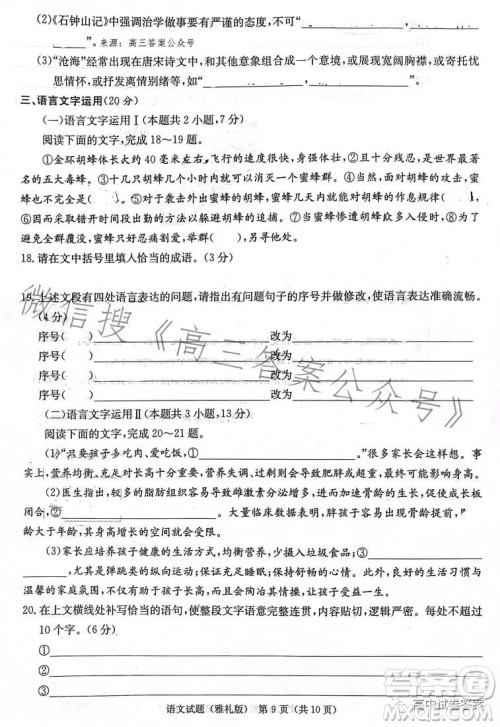 (2)《石钟山记》中强调治学做事要有严谨的态度，不可“
”来源：高三答案公众号
(3)“沧海”经常出现在唐宋诗文中，和其他意象组合成一个意境，或展现宽阔胸襟，或寄予忧
思情怀，或抒发离情别绪，如
三、语言文字运用(20分)
(一)语言文字运用Ⅰ(本题共2小题，7分)
阅读下面的文字，完成18～19题。
①金环胡蜂体长大约40毫米左右，飞行的速度很快，身强体壮，②且十分残忍，是世界闻
名的五大毒蜂。③十几只胡蜂几个小时内就可以消灭一个蜜蜂群。④面对胡蜂的攻击，蜜
蜂也不完全是(　　)，⑤对于袭击出外的胡蜂，蜜蜂几天内就能对胡蜂的作息规律(　　)，
⑥因而采取错开时间段出勤的方法以躲避胡蜂的追捕。⑦当蜜蜂惨遭胡蜂数次侵害，为了
避免全群覆没，蜜蜂只好忍痛割爱，举群(　　)，另寻居所。
18.请在文中括号里填入恰当的成语。(3分)
19.上述文段有四处语言表达的问题，请指出有问题句子的序号并做修改，使语言表达准确流畅。
(4分)
序号(　　)改为
序号(　　)改为
序号(　　)改为
序号(　　)改为
(二)语言文字运用Ⅱ(本题共3小题，13分)
阅读下面的文字，完成20～21题。
(1)“只要孩子多吃肉、爱吃饭，①。”很多家长会这样想。事
实上，营养均衡、充足对长高十分重要，营养失调、过剩则会导致肥胖或超重，影响长高。
(2)医生指出，较多的脂肪组织容易导致雌激素分泌增多，进而加速骨龄的生长，骨骺提前
闭合，②。在临床中，越来越多的超重、肥胖孩子出现骨龄超前，骨
龄大于年龄，其身高增长的空间就会受限。
(3)家长应培养孩子健康的生活方式，均衡营养，少摄入垃圾食品；充足睡眠，③
，尤其是弹跳类的、纵向拉伸的运动；保持愉悦，给孩子提供一个愉快、
温馨的家庭氛围，有利于激素的正常分泌，从而促进长高。
20.在上文横线处补写恰当的语句，使整段文字语意完整连贯，内容贴切，逻辑严密。每处不超过
10个字。(6分)
①
②
③
语文试题(雅礼版)　第9页(共10页)
微信搜《高三答案公众号》
答案圈
高中试卷答案